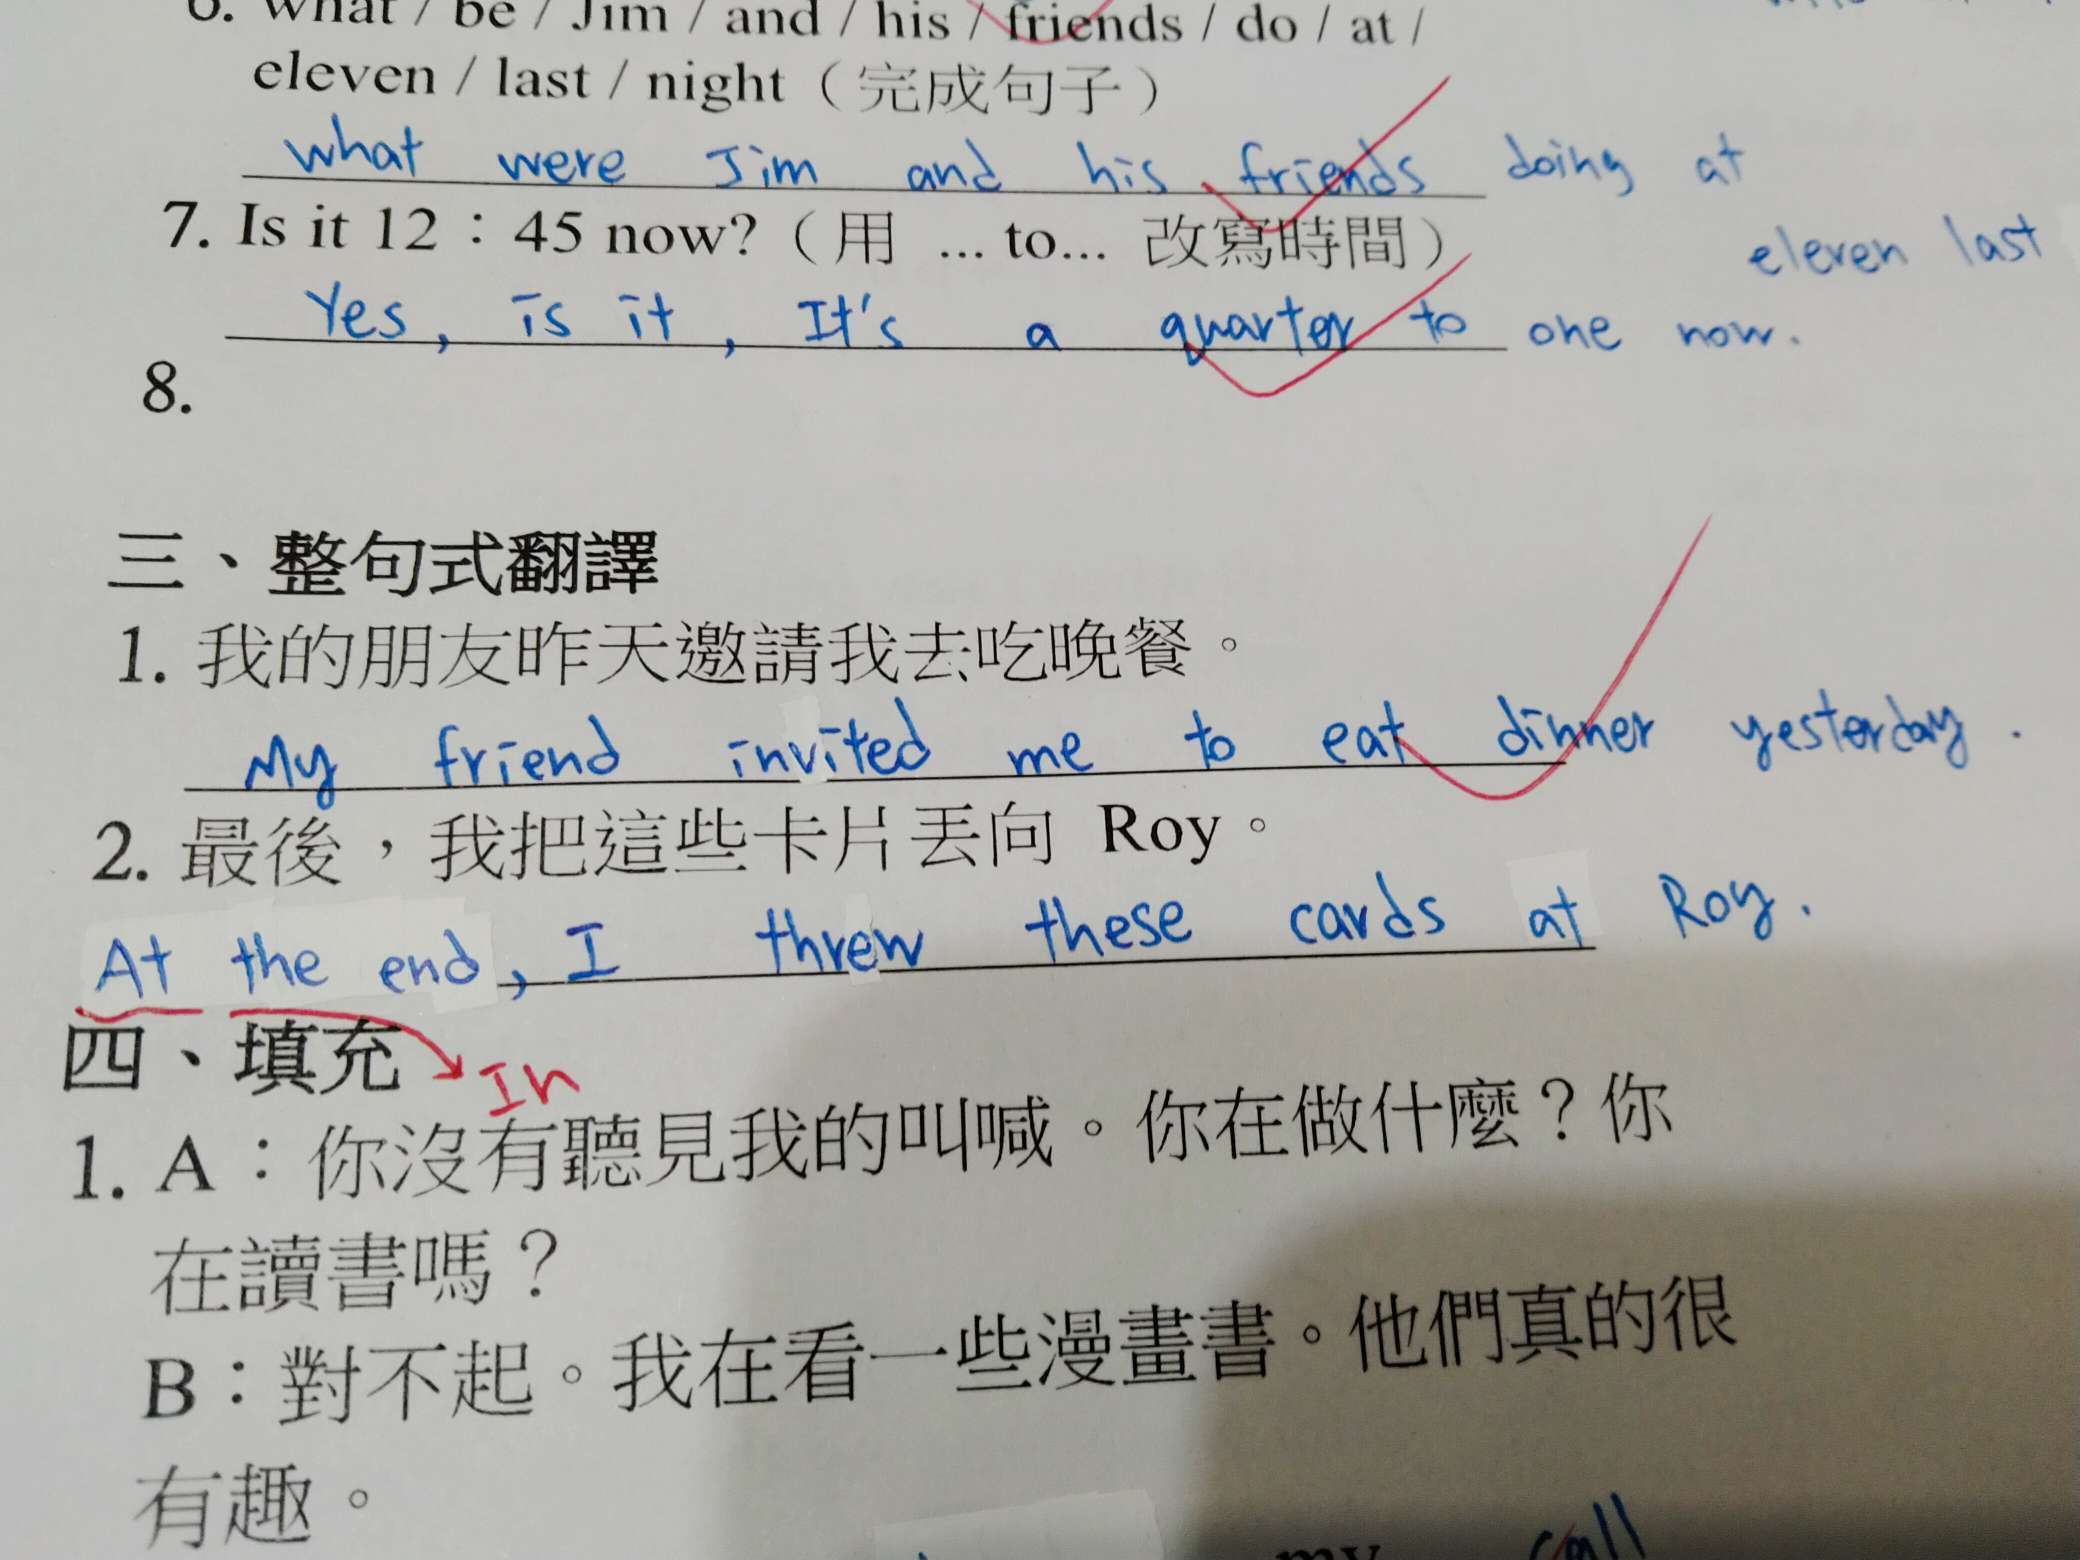 6. what / be / Jim / and / his / friends / do / at /
eleven / last / night（完成句子）
what were Jim and his friends doing at
eleven last
7. Is it 12：45 now?（用 ... to... 改寫時間）
Yes, is it, It's a quarter to one now.
8.
三、整句式翻譯
1. 我的朋友昨天邀請我去吃晚餐。
My friend invited me to eat dinner yesterday.
2. 最後，我把這些卡片丟向 Roy。
At the end, I threw these cards at Roy.
In
四、填充
1. A：你沒有聽見我的叫喊。你在做什麼？你
在讀書嗎？
B：對不起。我在看一些漫畫書。他們真的很
有趣。
my call